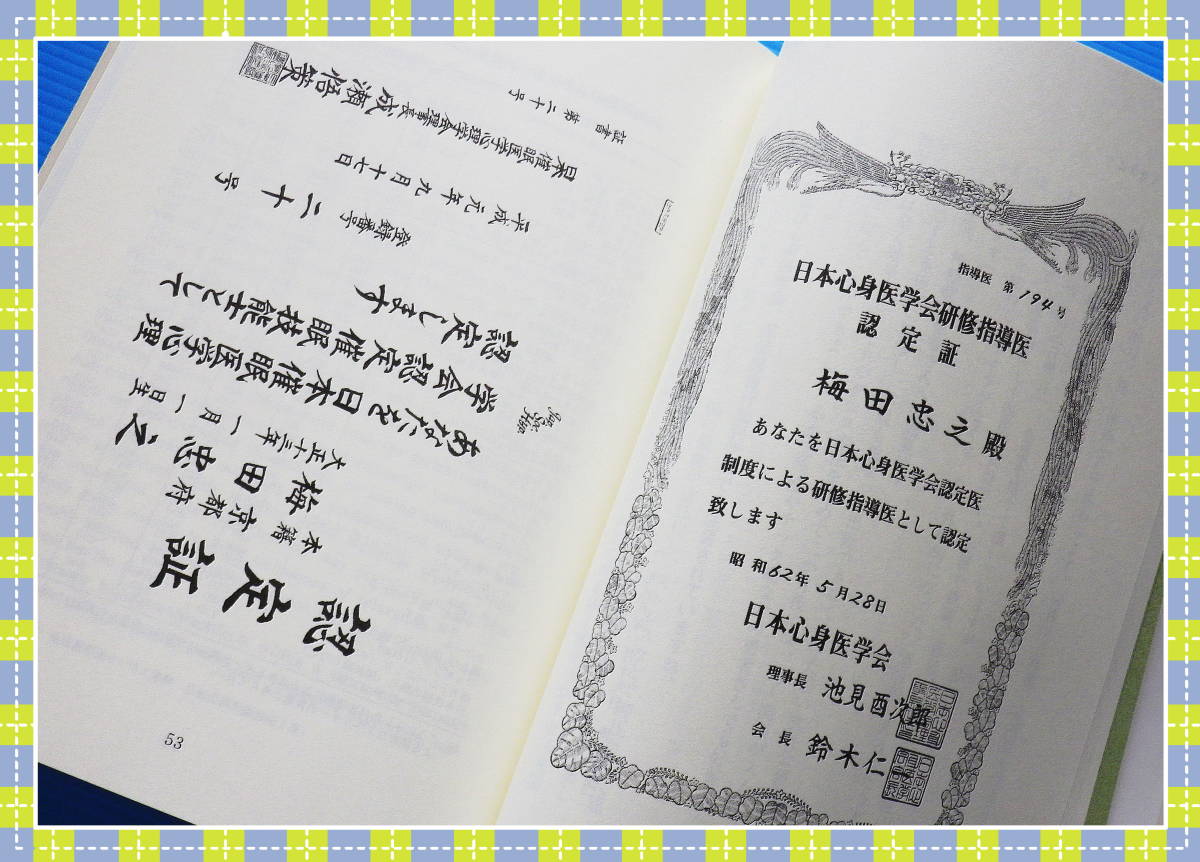 認定証
本籍 京都府
梅田忠之
大正十三年一月一日生
あなたを日本催眠医学心理
学会認定催眠技能士として
認定します
登録番号 二十号
平成元年九月十七日
日本催眠医学心理学会理事長 成瀬悟策
証書 第二十号
53
指導医 第194号
日本心身医学会研修指導医
認定証
梅田忠之殿
あなたを日本心身医学会認定医
制度による研修指導医として認定
致します
昭和62年5月28日
日本心身医学会
理事長 池見酉次郎
会長 鈴木仁一